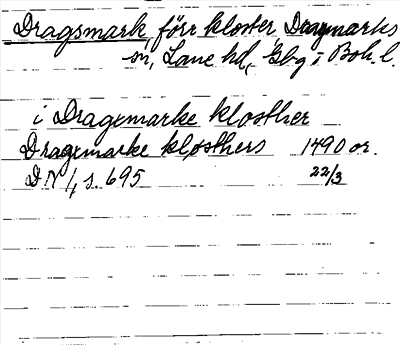 Dragsmark, förr kloster Dragsmarks
sn, Lane hd, Gbg i Boh. l.
i Dragxmarke klosther
Dragxmarke klosthers 1490 or.
DN 1, s. 695 22/3